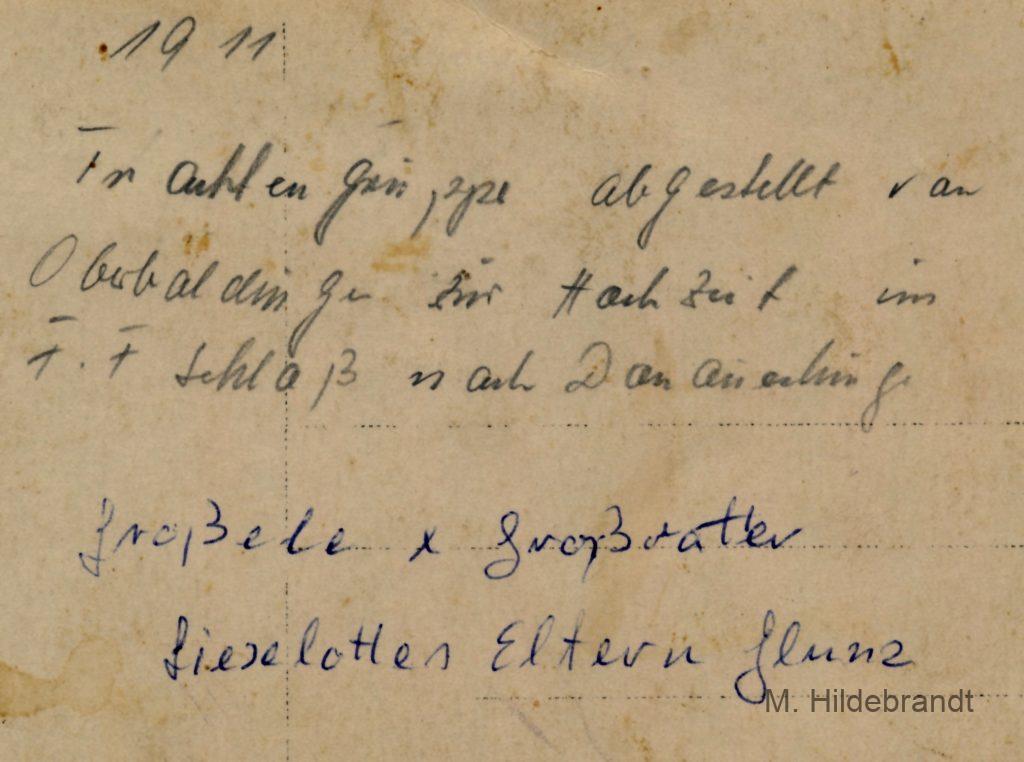 1911
Trachtengruppe abgestellt von
Oberbaldinge zur Hochzeit im
F.F Schloß nach Donaueschinge
Großele x Großvatter
Lieselottes Eltern Glunz
M. Hildebrandt